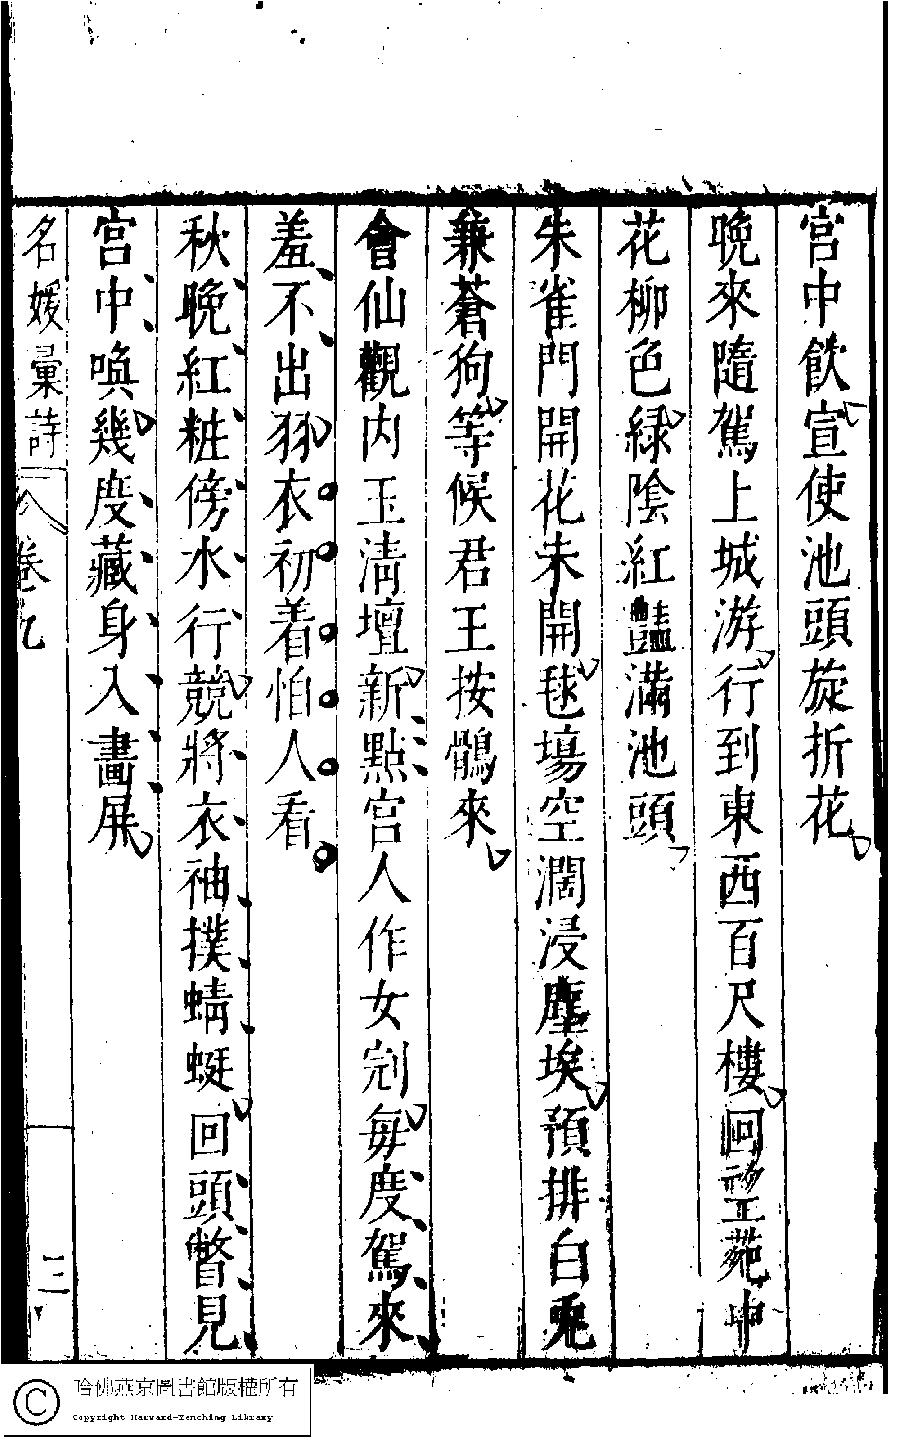 宮中飲宣使池頭旋折花
晚來隨駕上城游行到東西百尺樓回望苑中
花柳色綠陰紅豔滿池頭
朱雀門開花未開毬塲空濶浸塵埃預排白兎
蒹蒼狗等候君王按鶻來
會仙觀內玉淸壇新點宮人作女冠每度駕來
羞不出羽衣初着怕人看
秋晚紅粧傍水行競將衣袖撲蜻蜓回頭瞥見
宮中喚幾度藏身入畫屏
名媛彙詩 卷九 三
哈佛燕京圖書館版權所有
Copyright Harvard-Yenching Library